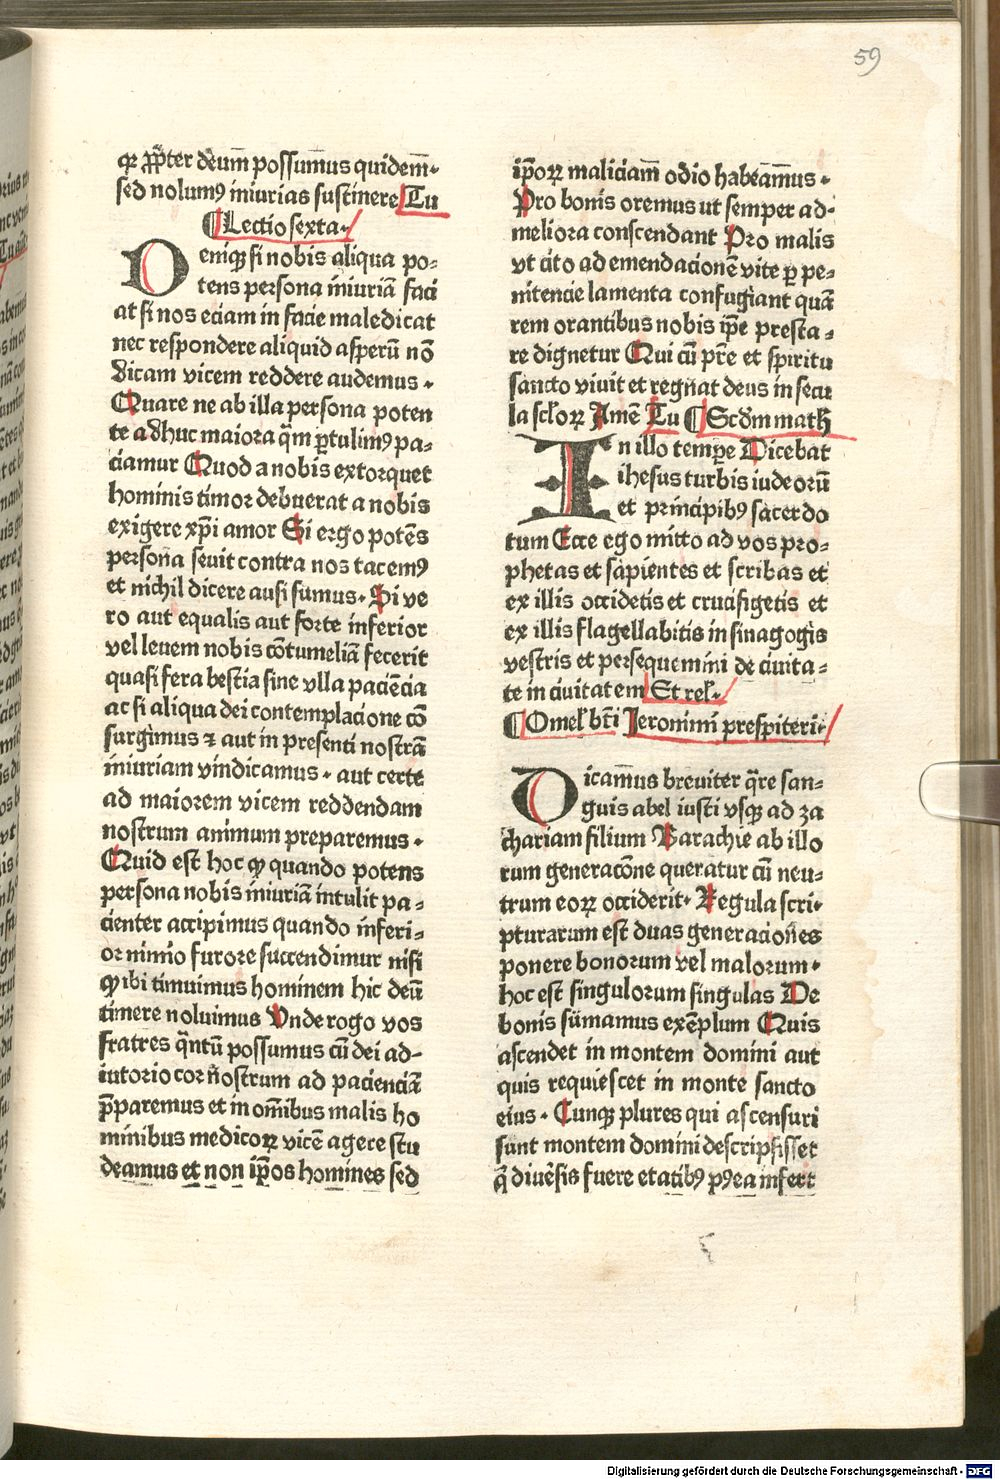 59
qꝛ ꝓpter deum̄ possumus quidem̄·
sed nolumꝰ iniurias sustinere Tu
¶Lectio sexta·
Deniqꝫ si nobis aliqua po-
tens persona iniuriā faci
at si nos eciam in facie maledicat
nec respondere aliquid asperū nō
dicam vicem reddere audemus·
Quare ne ab illa persona poten
te adhuc maiora q̄m ꝑtulimꝰ pa-
ciamur Quod a nobis extorquet
hominis timor debuerat a nobis
exigere xp̄i amor Si ergo potēs
persona seuit contra nos tacemꝰ
et nichil dicere ausi sumus· Si ve
ro aut equalis aut forte inferior
vel leuem nobis cōtumeliā fecerit
quasi fera bestia sine vlla paciēcia
ac si aliqua dei contemplacione cō
surgimus ⁊ aut in presenti nostrā
iniuriam vindicamus· aut certe
ad maiorem vicem reddendam
nostrum animum preparemus·
Quid est hoc ꝙ quando potens
persona nobis iniuriā intulit pa-
cienter accipimus quando inferi-
or nimio furore succendimur nisi
ꝙ ibi timuimus hominem hic deū
timere noluimus Vnde rogo vos
fratres q̄ntū possumus cū dei ad-
iutorio cor nostrum ad pacienciā
p̄paremus et in om̄ibus malis ho
minibus medicoꝝ vicē agere stu
deamus et non ip̄os homines sed
ip̄oꝝ maliciam̄ odio habeam̄us·
Pro bonis oremus ut semper ad-
meliora conscendant Pro malis
vt cito ad emendacionē vite ꝑ pe-
nitencie lamenta confugiant quā
rem orantibus nobis ip̄e presta-
re dignetur Qui cū pr̄e et spiritu
sancto viuit et regnat deus in secu
la scl̄oꝝ Amē Tu ¶Scd̄m math̄
In illo temꝑe Dicebat
ihesus turbis iudeorū
et principibꝰ sacerdo
tum Ecce ego mitto ad vos pro-
phetas et sapientes et scribas et
ex illis occidetis et crucifigetis et
ex illis flagellabitis in sinagogis
vestris et persequemini de ciuita-
te in ciuitatem Et rel̄·
¶Omel̄ bt̄i Jeronimi prespiteri·
Dicam̄us breuiter q̄re san-
guis abel iusti vsqꝫ ad za
chariam filium Barachie ab illo
rum generacōne queratur cū neu-
trum eoꝝ occiderit· Regula scri-
pturarum est duas generacion̄es
ponere bonorum vel malorum·
hoc est singulorum singulas De
bonis sūmamus exēplum Quis
ascendet in montem domini aut
quis requiescet in monte sancto
eius· Cunqꝫ plures qui ascensuri
sunt montem domini descripsisset
q̄ diuersis fuere etatibꝰ pꝰea infert
Digitalisierung gefördert durch die Deutsche Forschungsgemeinschaft - DFG